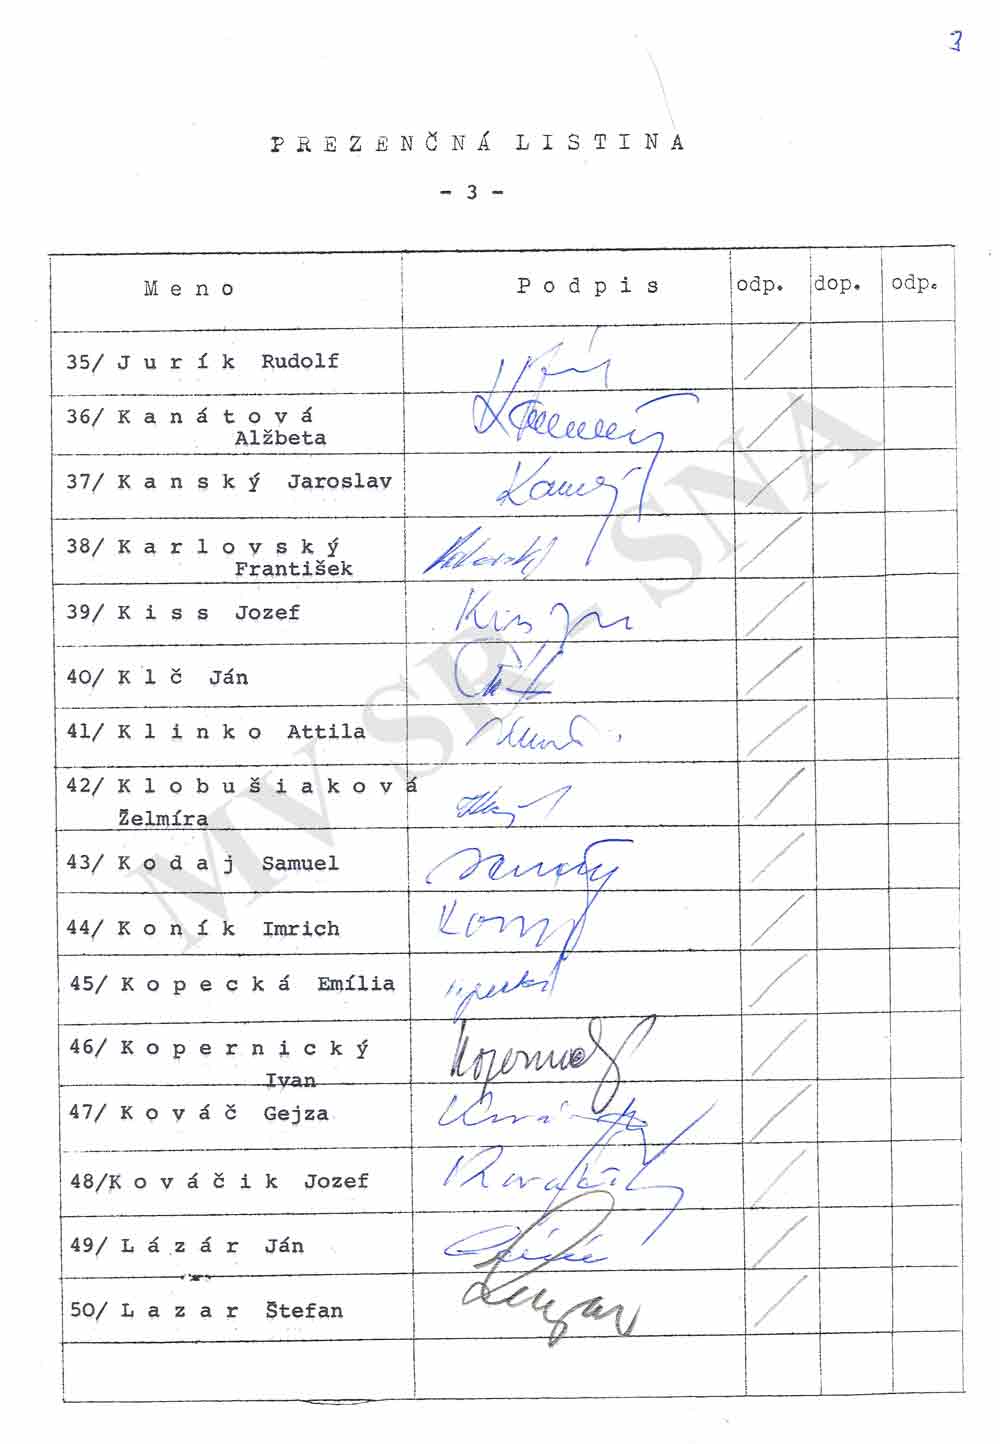 3
PREZENČNÁ LISTINA
- 3 -
Meno Podpis odp. dop. odp.
35/ Jurík Rudolf
36/ Kanátová
Alžbeta
37/ Kanský Jaroslav
38/ Karlovský
František
39/ Kiss Jozef
40/ Klč Ján
41/ Klinko Attila
42/ Klobušiaková
Želmíra
43/ Kodaj Samuel
44/ Koník Imrich
45/ Kopecká Emília
46/ Kopernický
Ivan
47/ Kováč Gejza
48/Kováčik Jozef
49/ Lázár Ján
50/ Lazar Štefan
MV SR - SNA